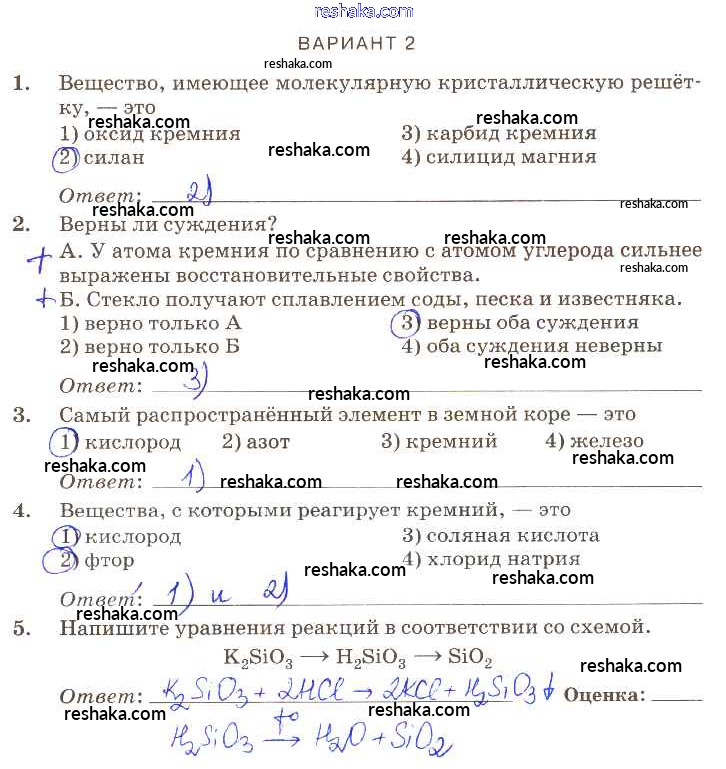 reshaka.com
ВАРИАНТ 2
reshaka.com
1. Вещество, имеющее молекулярную кристаллическую решёт-
ку, — это
reshaka.com reshaka.com
1) оксид кремния 3) карбид кремния
reshaka.com
2) силан 4) силицид магния
Ответ: 2)
reshaka.com reshaka.com
2. Верны ли суждения?
reshaka.com reshaka.com
+ А. У атома кремния по сравнению с атомом углерода сильнее
выражены восстановительные свойства.
reshaka.com
+ Б. Стекло получают сплавлением соды, песка и известняка.
1) верно только А 3) верны оба суждения
2) верно только Б 4) оба суждения неверны
reshaka.com reshaka.com
Ответ: 3)
reshaka.com
3. Самый распространённый элемент в земной коре — это
1) кислород 2) азот 3) кремний 4) железо
reshaka.com reshaka.com
Ответ: 1)
reshaka.com reshaka.com
4. Вещества, с которыми реагирует кремний, — это
1) кислород 3) соляная кислота
2) фтор 4) хлорид натрия
reshaka.com reshaka.com
Ответ: 1) и 2)
reshaka.com
5. Напишите уравнения реакций в соответствии со схемой.
K₂SiO₃ → H₂SiO₃ → SiO₂
reshaka.com
Ответ: K₂SiO₃ + 2HCl → 2KCl + H₂SiO₃↓ Оценка:
reshaka.com reshaka.com
H₂SiO₃ t° → H₂O + SiO₂